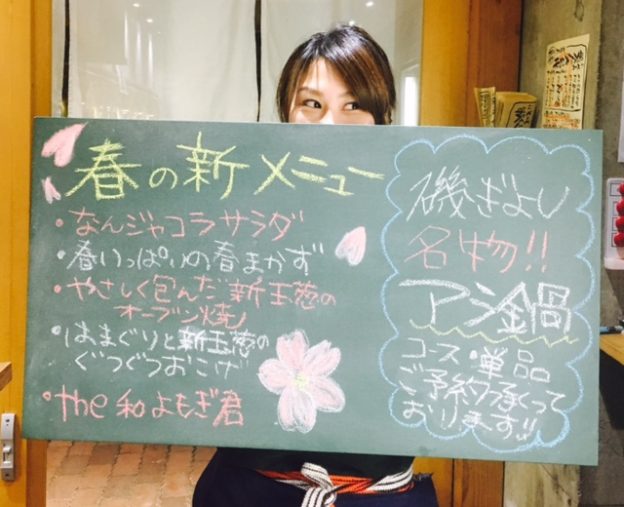 春の新メニュー
・なんジャコラサラダ
・春いっぱいの春まかず
・やさしく包んだ新玉葱の
オーブン焼
・はまぐりと新玉葱の
ぐつぐつおこげ
・the 和よもぎ君
磯ぎよし
名物!!
アン鍋
コース・単品
ご予約承って
おります!!